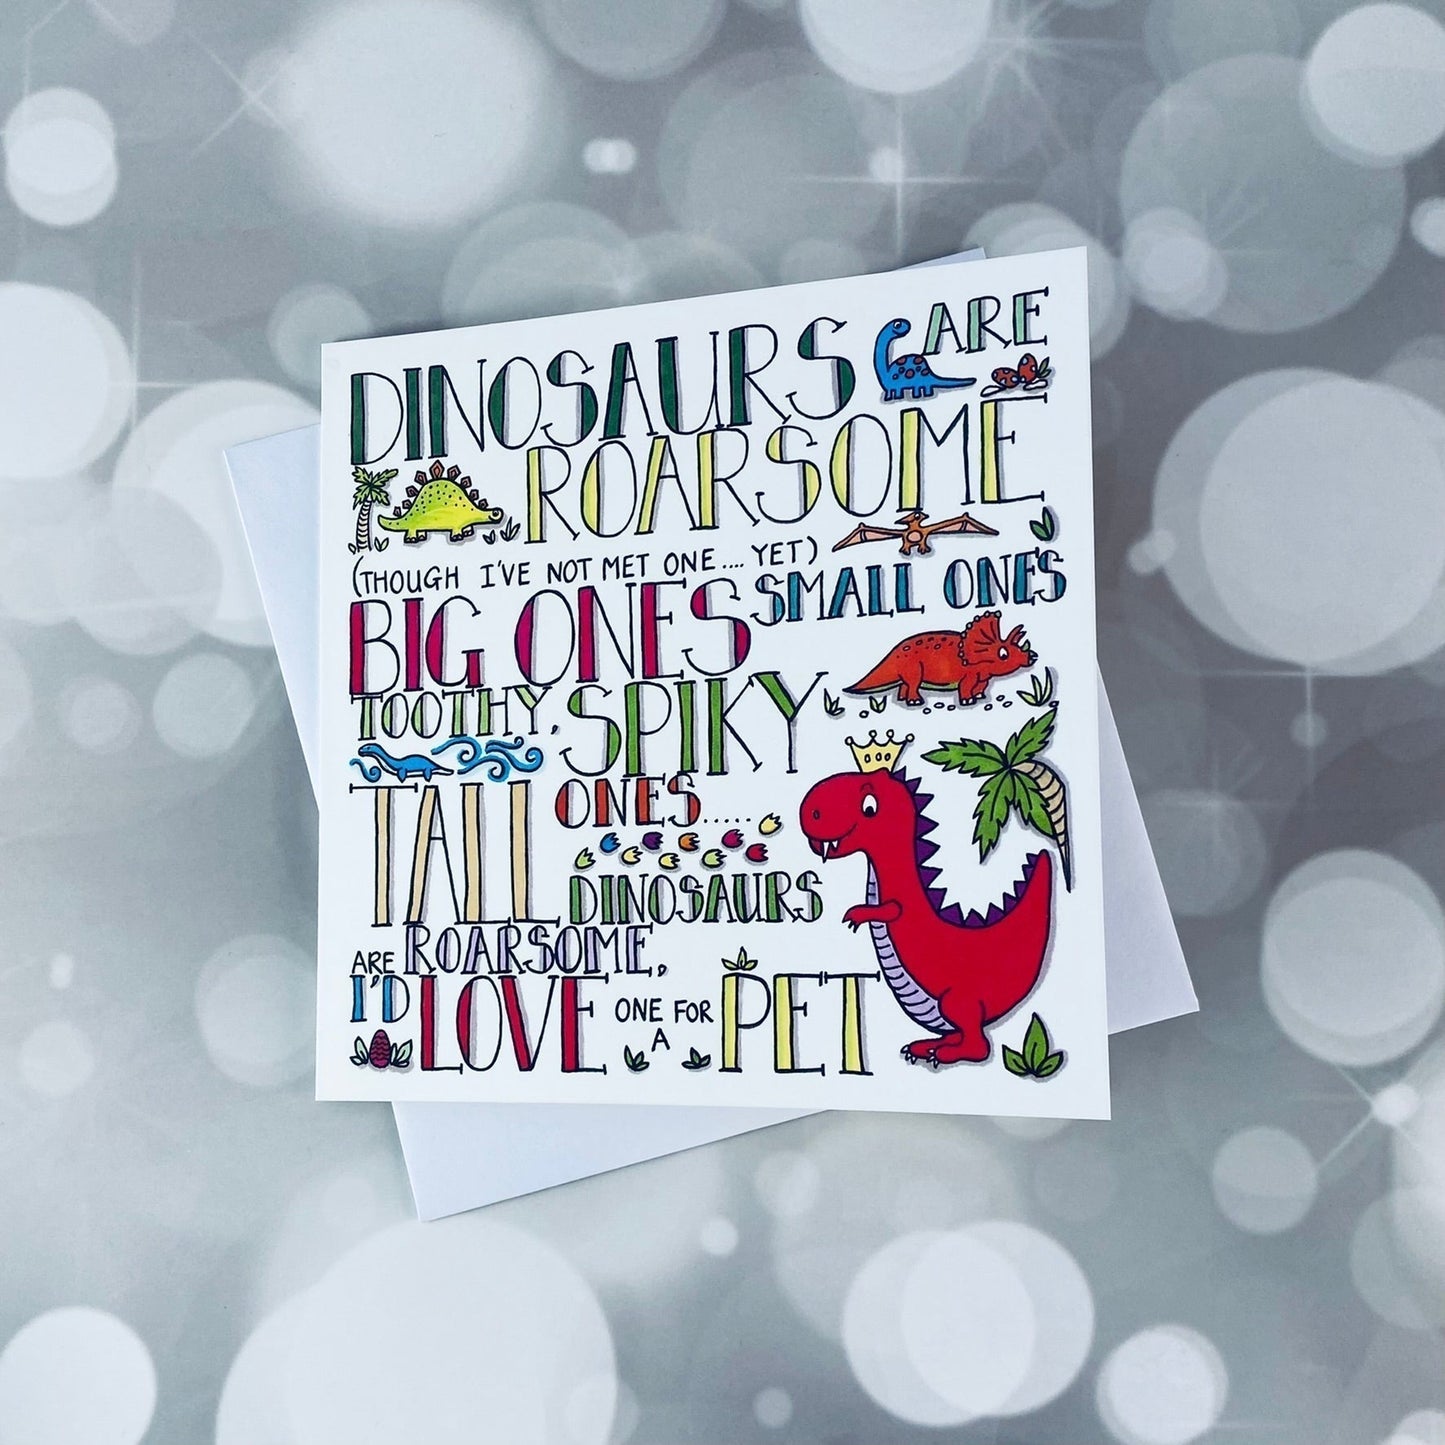 DINOSAURS ARE
ROARSOME
(THOUGH I'VE NOT MET ONE.... YET)
BIG ONES SMALL ONES
TOOTHY, SPIKY
TALL ONES.....
DINOSAURS
ARE ROARSOME,
I'D LOVE ONE FOR A PET